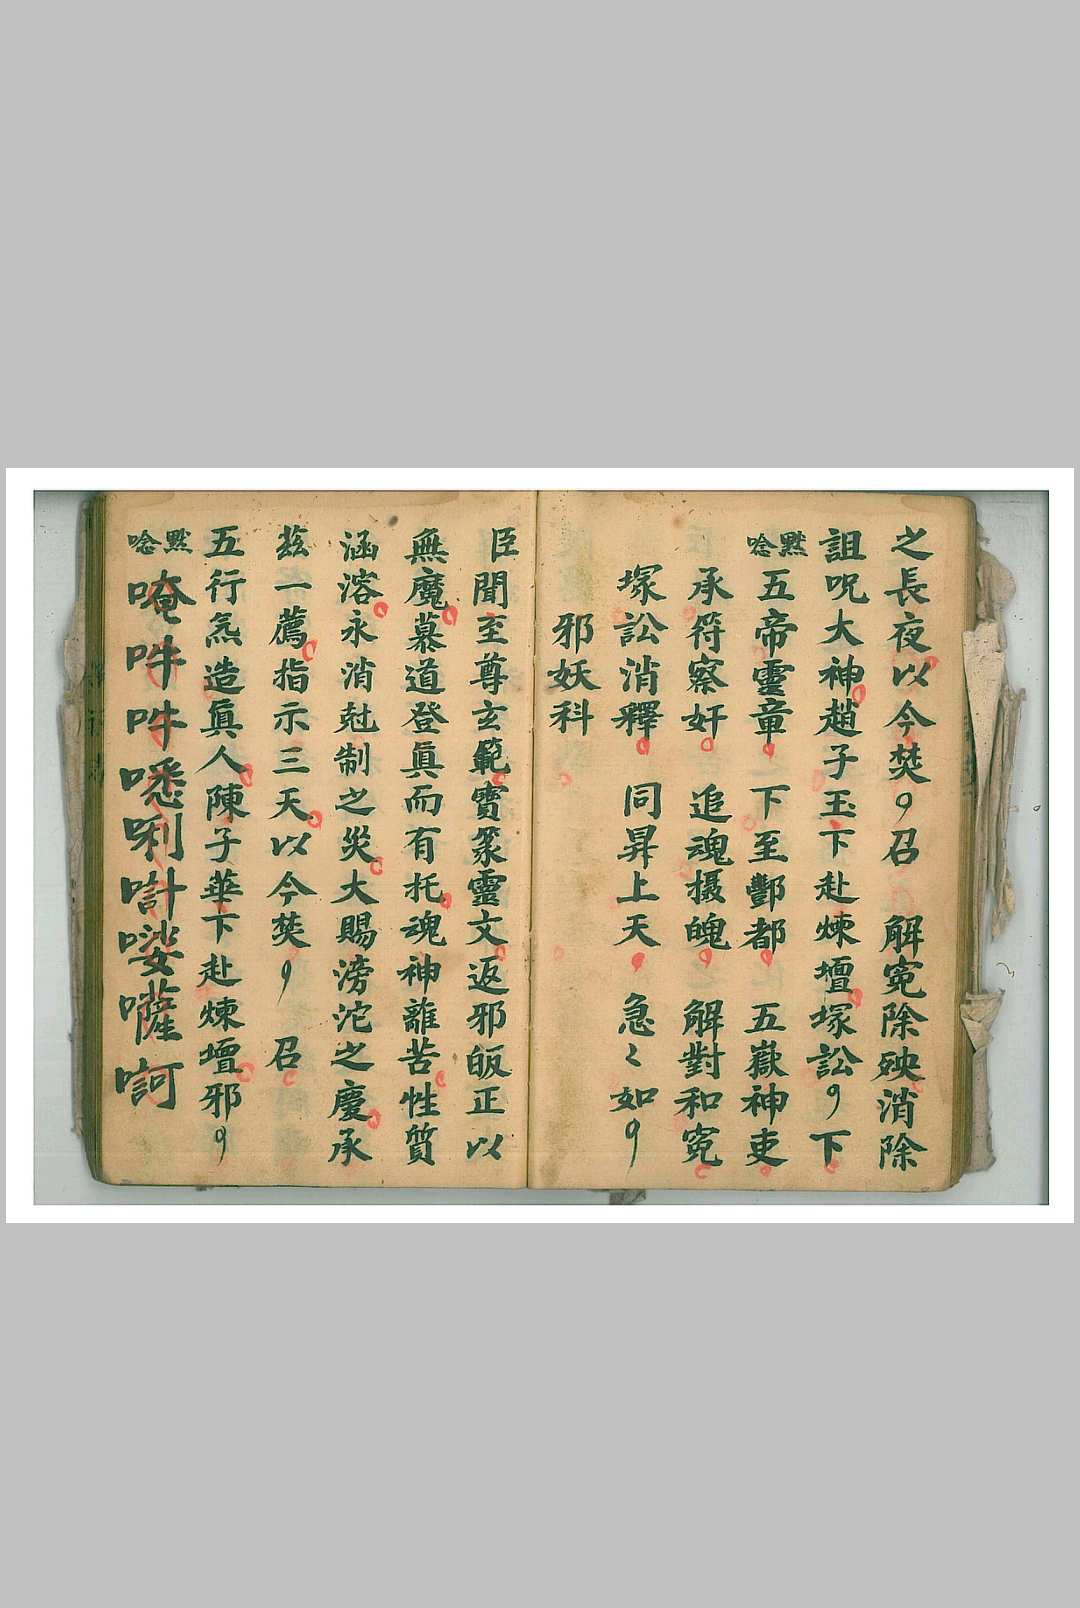 之長夜以今焚〻召 解寃除殃消除
詛呪大神趙子玉下赴煉壇塚訟〻下
默唸 五帝靈童下至酆都 五嶽神吏
承符察奸 追魂摄魄 解對和寃
塚訟消釋 同昇上天 急〻如〻
邪妖科
臣聞至尊玄範寶篆靈文返邪皈正以
無魔慕道登眞而有托魂神離苦性質
涵溶永消尅制之災大賜滂沱之慶承
茲一薦指示三天以今焚〻 召
五行炁造眞人陳子華下赴煉壇邪〻
默唸 唵吽吽㘄唎㖇㗌囐訶